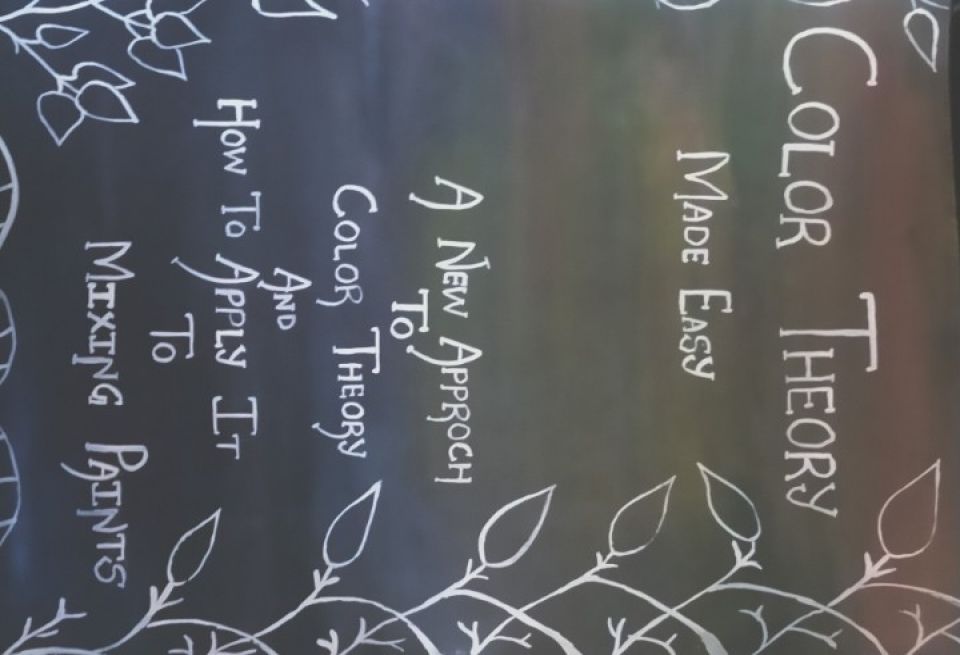 Color Theory
Made Easy
A New Approch
To
Color Theory
And
How To Apply It
To
Mixing Paints